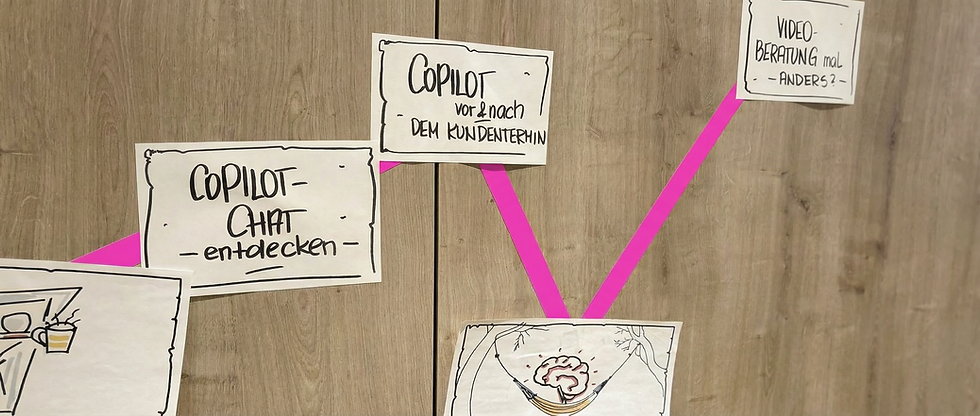 COPILOT-
CHAT
- entdecken -
COPILOT
vor & nach
DEM KUNDENTERMIN
VIDEO-
BERATUNG mal
- ANDERS? -